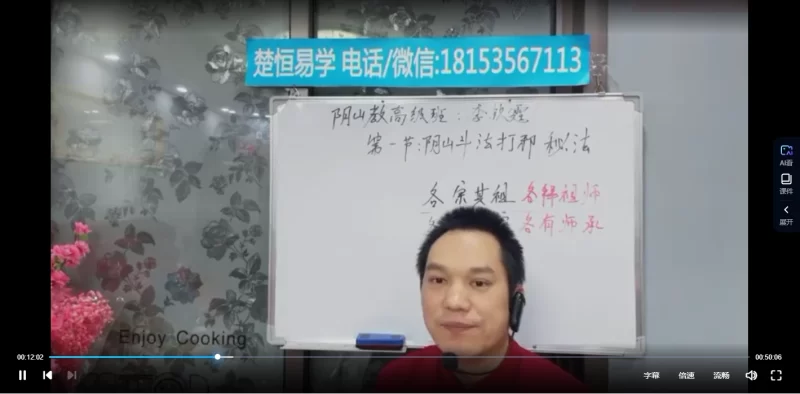 楚恒易学 电话/微信:18153567113
阴山教高级班:
第一节:阴山斗法打邪秘法
各宗其祖 各歸祖师
各有师承
Enjoy Cooking
AI看
课件
展开
00:12:02
00:50:06
字幕 倍速 流畅